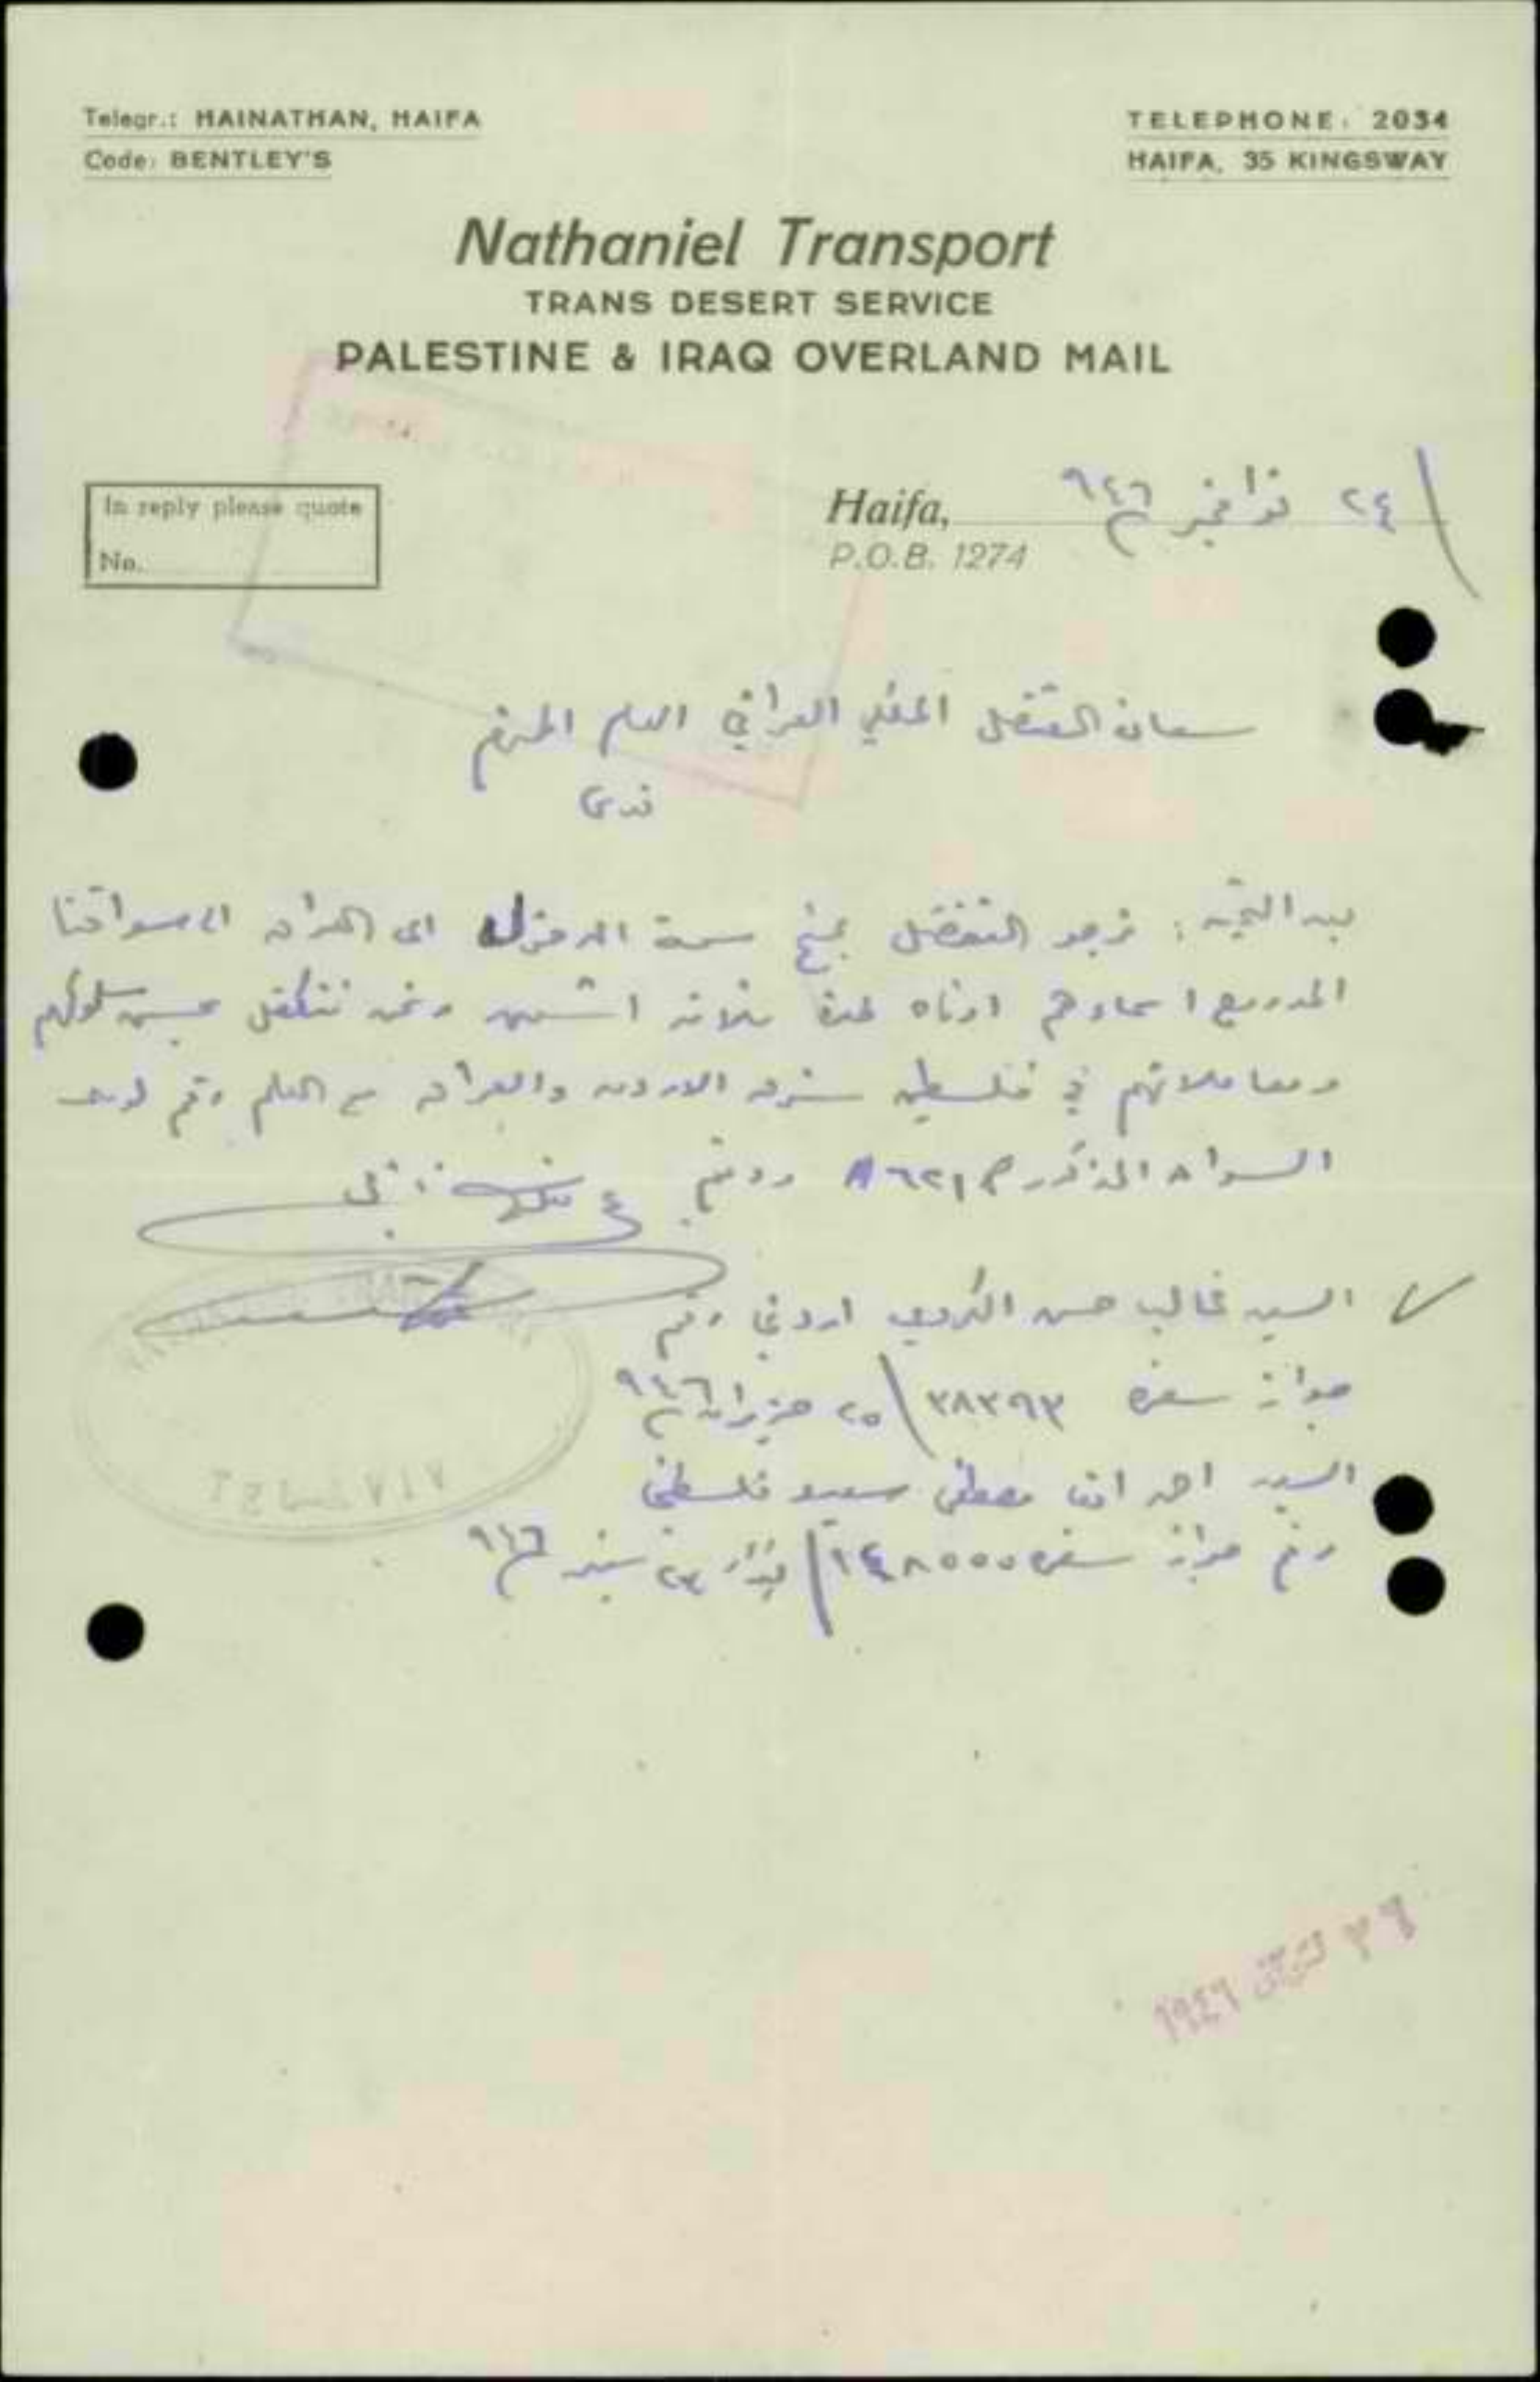 Telegr.: HAINATHAN, HAIFA
Code: BENTLEY'S
TELEPHONE: 2034
HAIFA, 35 KINGSWAY
Nathaniel Transport
TRANS DESERT SERVICE
PALESTINE & IRAQ OVERLAND MAIL
In reply please quote
No.
Haifa, ٢٤ نوفمبر ٩٤٦
P.O.B. 1274
سعادة القنصل العراقي العام المحترم
بعد التحية: نرجو التفضل بمنح سمة الدخول الى العراق الى سواقنا
المدرجة اسماؤهم ادناه لمدة ثلاثة اشهر ونحن نتكفل بحسن سلوكهم
ومعاملاتهم في فلسطين شرق الاردن والعراق مع العلم رقم
المذكور ودمتم
السيد غالب حسن الكردي اردني رقم
جواز سفره ٣٨٣٩٣ / ٢٥ حزيران ٩٤٦
السيد احمد اغا مصطفى سعيد فلسطيني
رقم جواز سفره ١٤٨٥٥٥ / ٢٣ سبتمبر ٩٤٦